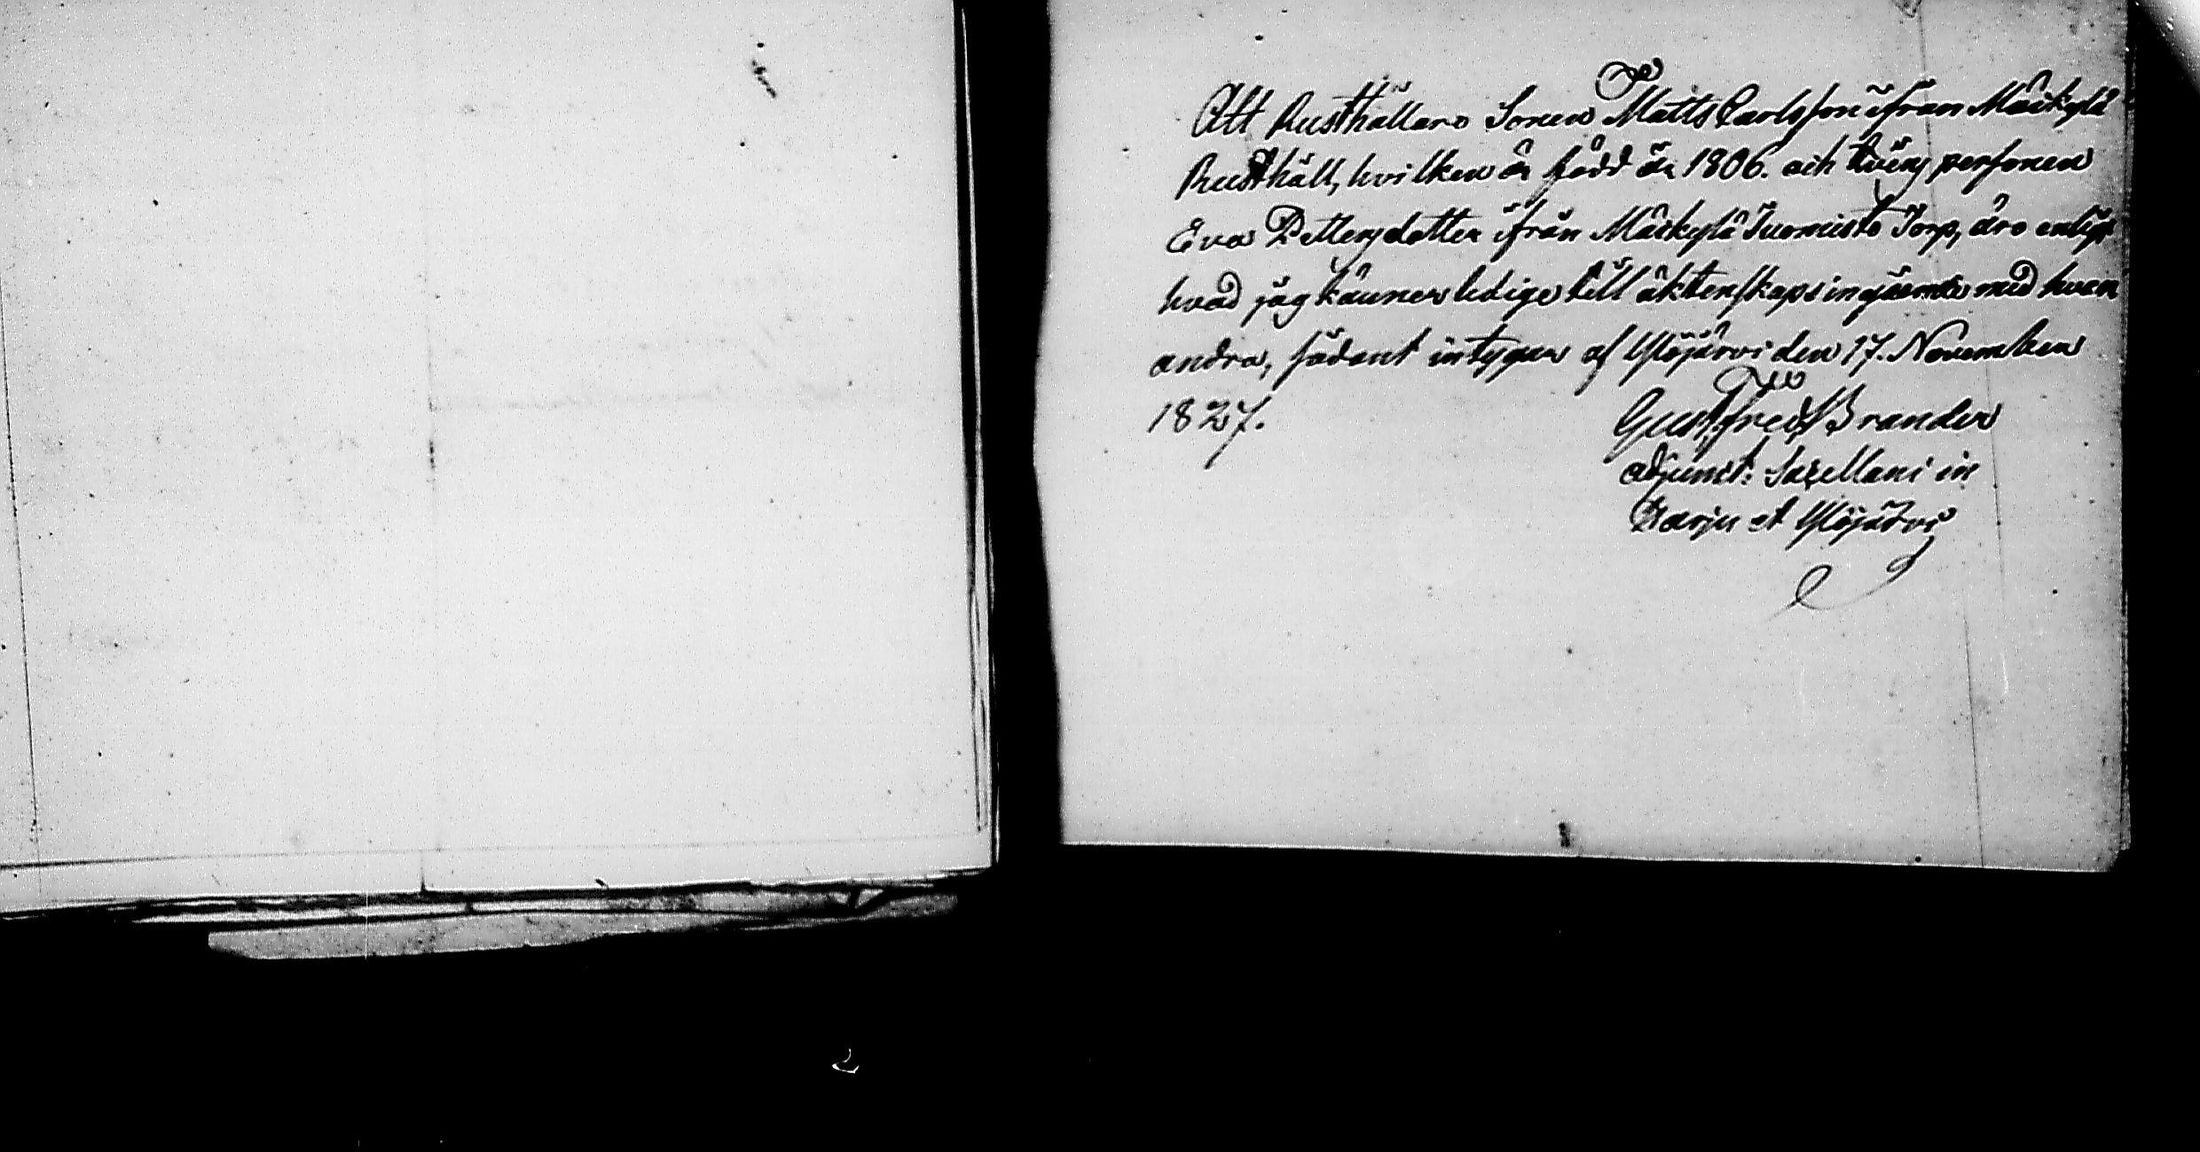 Att Rusthållare Sonen Matts Carlsson ifrån Mäskylä
Rusthåll, hvilken är född år 1806. och qvins personen
Eva Pettersdotter ifrån Mäskylä Tuomisto Torp, äro enligt
hvad jag känner ledige till äktenskaps ingående med hvar
andra, sådant intygar af Ylöjärvi den 17. November
1827.
Gust. Fred. Brander
adjunct: Sacellani in
Harju et Ylöjärvi